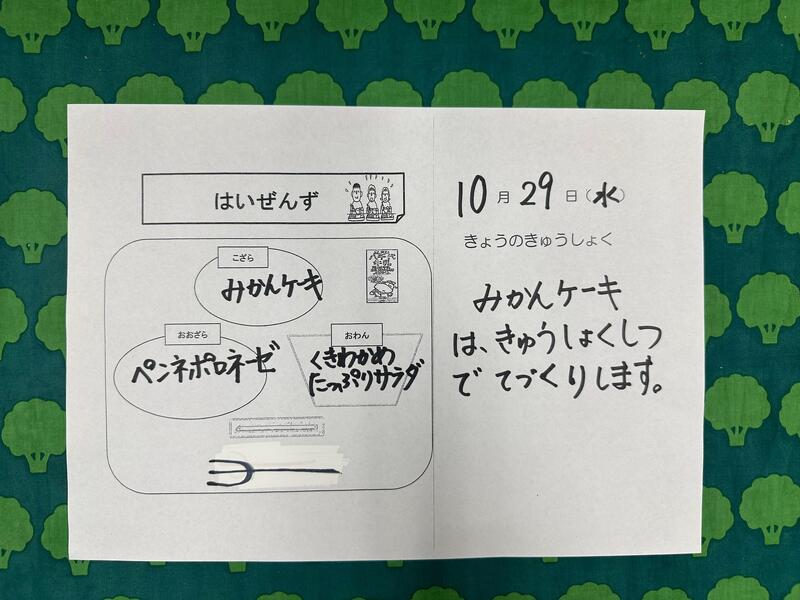 はいぜんず
こざら
みかんケーキ
おおざら
ペンネポロネーゼ
おわん
くきわかめ
たっぷりサラダ
10月29日(水)
きょうのきゅうしょく
みかんケーキ
は、きゅうしょくしつ
で てづくりします。